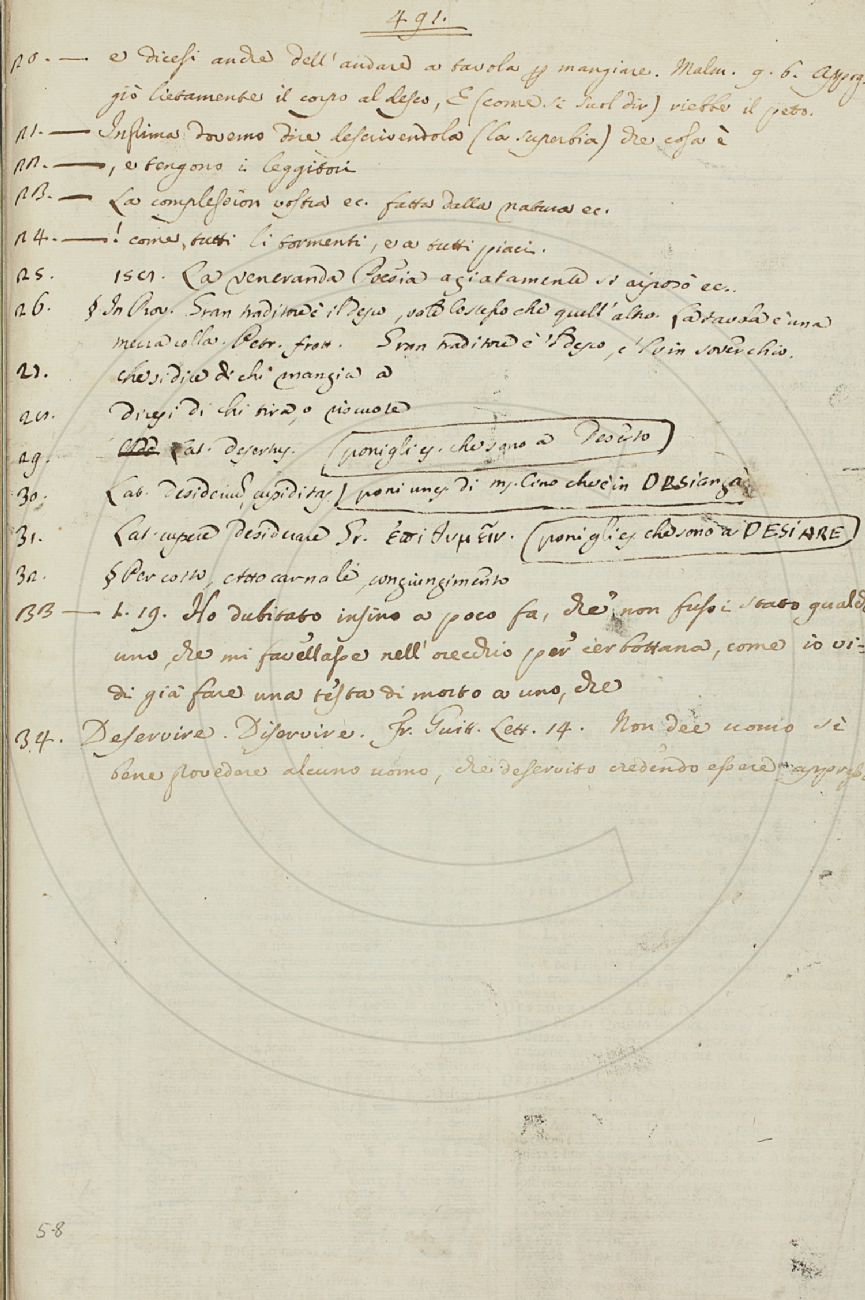 491.
20. — e dicesi anche dell'andare a tavola p mangiare. Malm. 9. 6. Appog-
giò lietamente il corpo al desco, E (come si suol dir) riebbe il peto.
21. — Insima dovemo dire descrivendola (la superbia) che cosa è
22. — , e tengono i leggitori
23. — La complession vostra ec. fatta dalla natura ec.
24. — ! come, tutti li tormenti, e a tutti piaci.
25. 151. La veneranda Poesia agiatamente si riposò ec.
26. § In Prov. Gran traditore è il Desco, vale lo stesso che quell'altro. La tavola è una
mezza colla. Petr. frott. Gran traditore è 'l Desco, e 'l vin soverchio.
27. che si dice di chi mangia a
28. dicesi di chi tira, o riscuote
29. Lat. desertus. (ponigli es. che sono a Deserto)
30. Lat. desiderium, cupiditas) poni un es. di m. Cino che è in DESianza
31. Lat. cupere desiderare Gr. ἐπιθυμεῖν. (ponigli es. che sono a DESIARE)
32. § Per coito, Atto carnale, congiungimento
33 — L. 19. Ho dubitato insino a poco fa, che non fussi stato qualch
uno, che mi favellasse nell'orecchio per cerbottana, come io vi-
di già fare una testa di morto a uno, che
34. Deservire. Diservire. Fr. Guitt. Lett. 14. Non dee uomo sì
bene provedere alcuno uomo, che deservito credendo essere
58